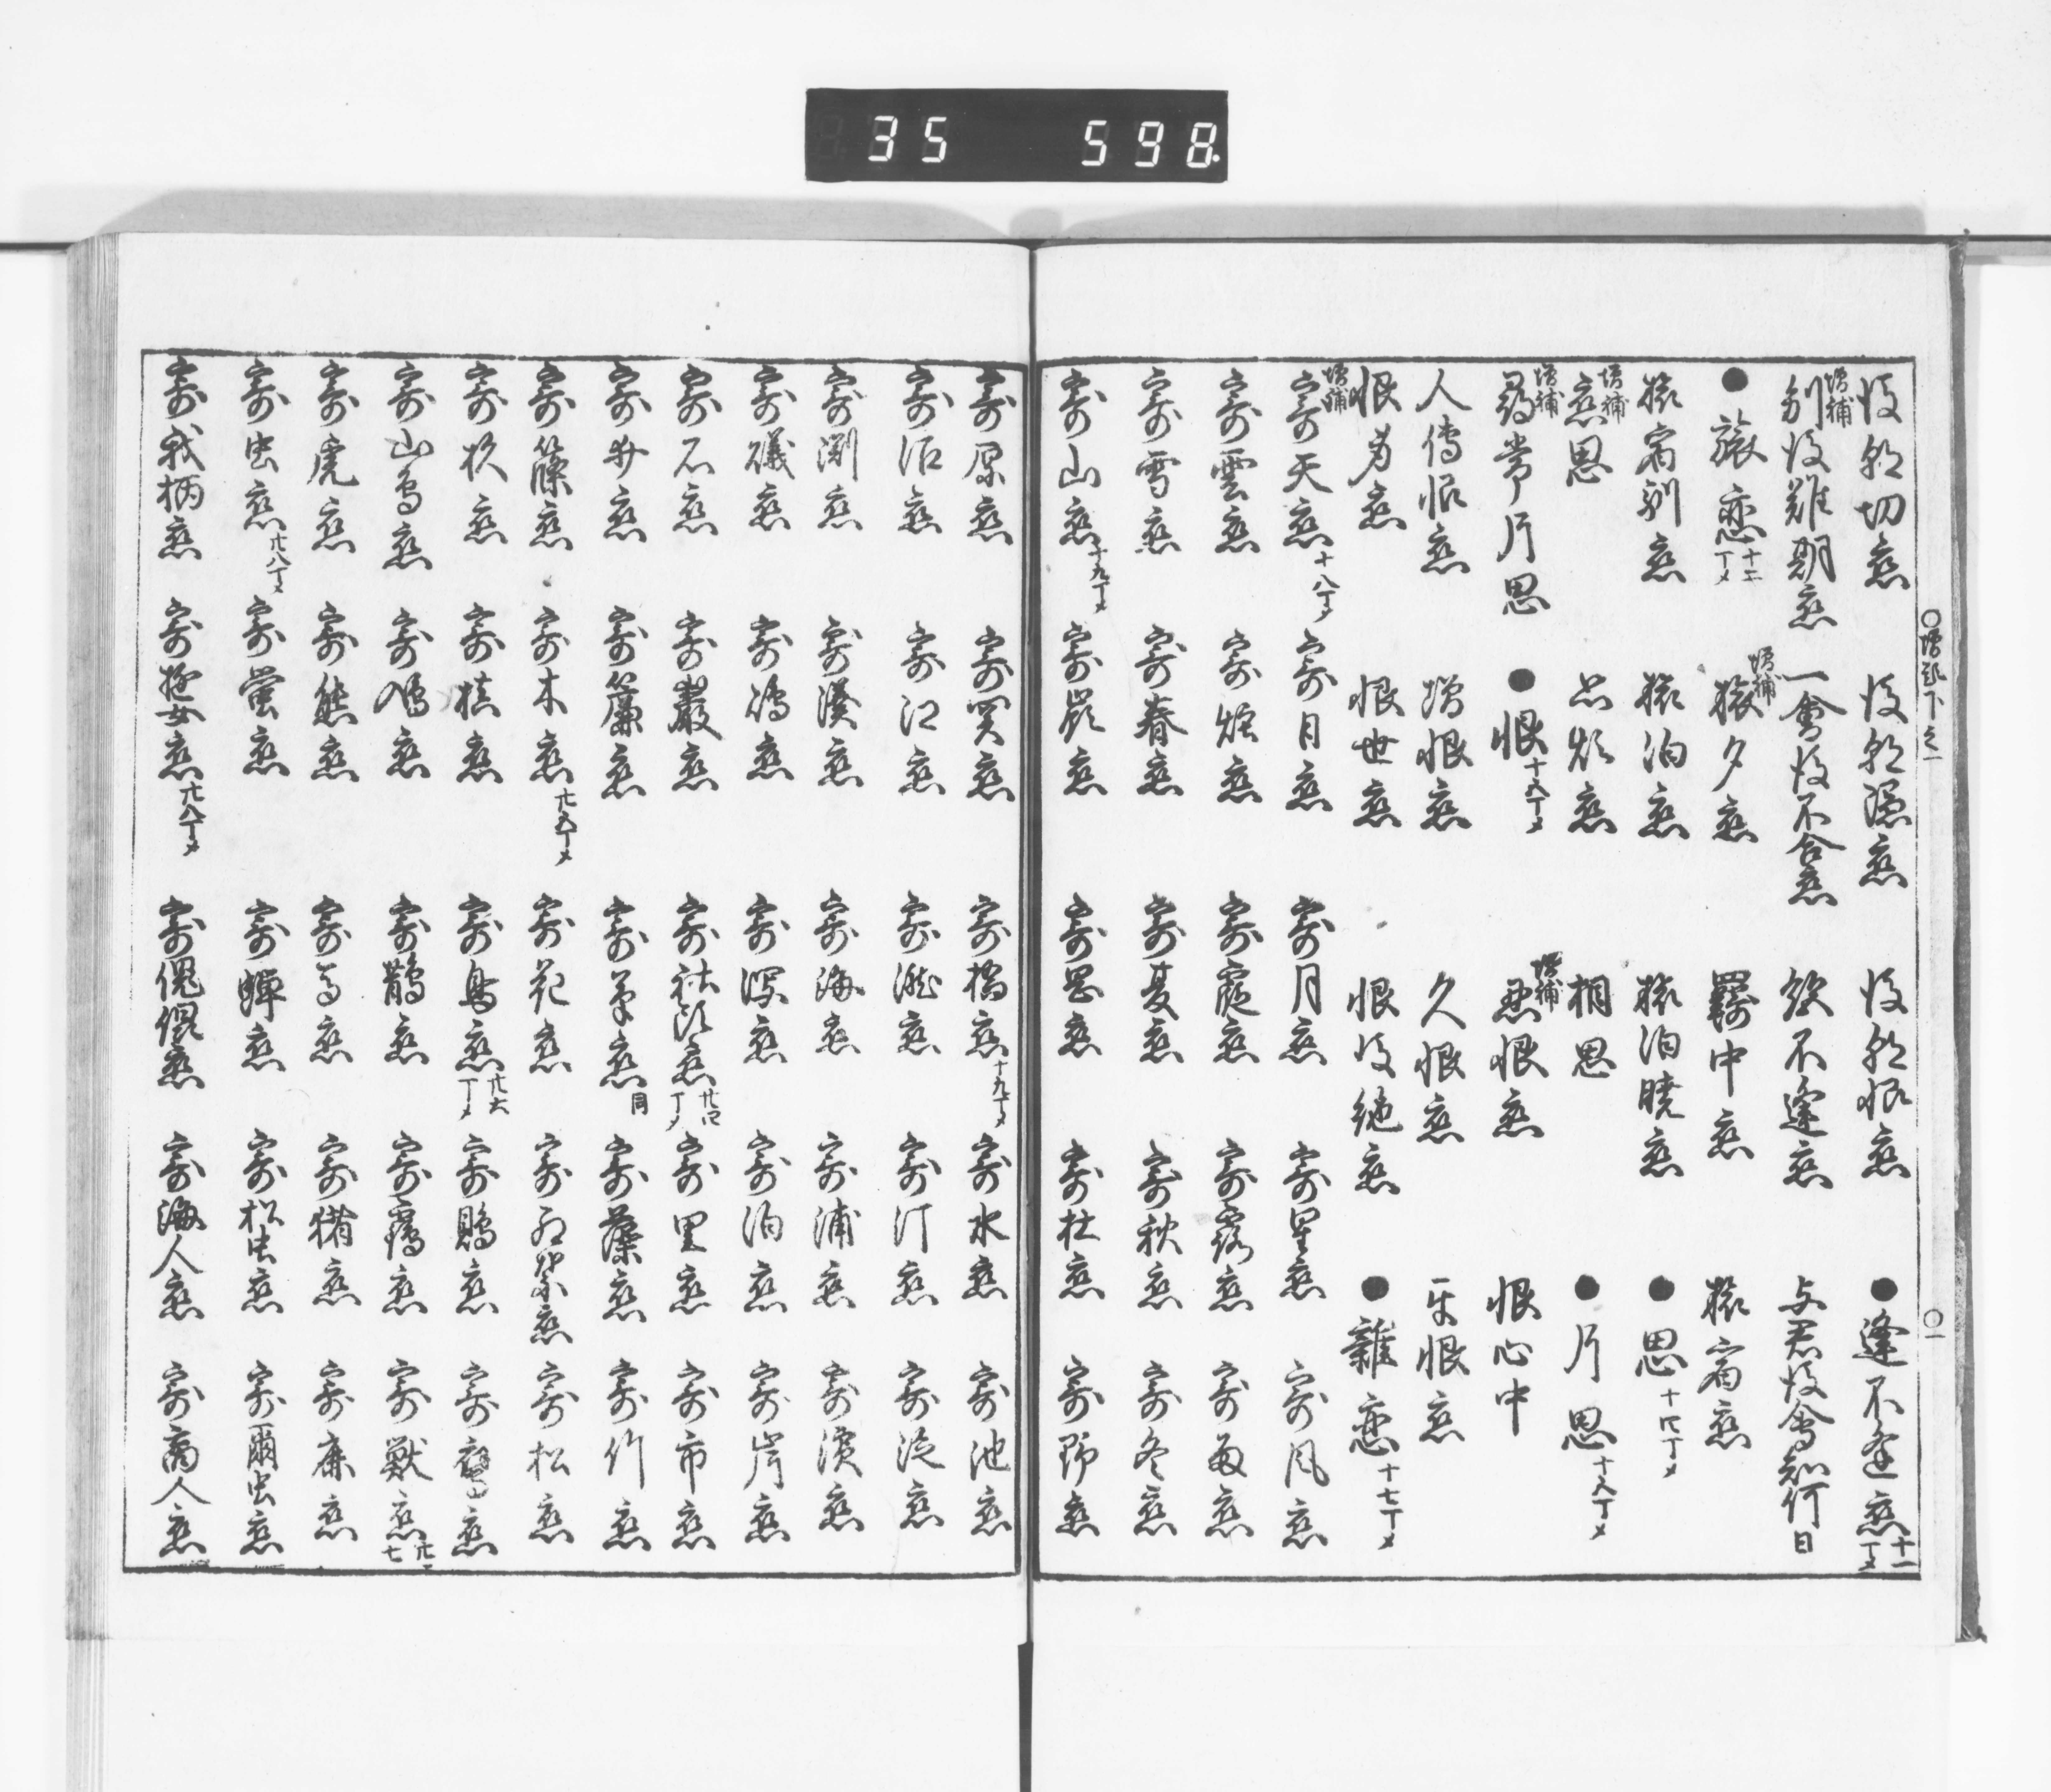 35 598
後朝切恋 後朝憑恋 後朝恨恋 ●逢不逢恋十一丁メ
増補 別後難期恋 一會後不合恋 欲不逢恋 与君後會知何日
●旅恋十二丁メ 増補 旅夕恋 羇中恋 旅宿恋
旅宿馴恋 旅泊恋 旅泊暁恋 ●思十四丁メ
増補 恋思 忘煩恋 相思 ●片思十五丁メ
増補 尋常片思 ●恨十五丁メ 増補 忍恨恋 恨心中
人傳恨恋 増恨恋 久恨恋 互恨恋
恨身恋 恨世恋 恨後絶恋 ●雑恋十七丁メ
増補 寄天恋十八丁メ 寄日恋 寄月恋 寄星恋 寄風恋
寄雲恋 寄煙恋 寄霞恋 寄露恋 寄雨恋
寄雪恋 寄春恋 寄夏恋 寄秋恋 寄冬恋
寄山恋十九丁メ 寄嶺恋 寄岡恋 寄杜恋 寄野恋
寄原恋 寄関恋 寄橋恋十九丁メ 寄水恋 寄池恋
寄沼恋 寄江恋 寄瀧恋 寄汀恋 寄淀恋
寄渕恋 寄湊恋 寄海恋 寄浦恋 寄濱恋
寄礒恋 寄嶋恋 寄潟恋 寄泊恋 寄岸恋
寄石恋 寄巖恋 寄社頭恋廿四丁メ 寄里恋 寄市恋
寄井恋 寄簾恋 寄草恋同 寄藻恋 寄竹恋
寄篠恋 寄木恋廿五丁メ 寄花恋 寄紅葉恋 寄松恋
寄杉恋 寄槙恋 寄鳥恋廿六丁メ 寄鴨恋 寄鷺恋
寄山鳥恋 寄鳩恋 寄鵲恋 寄鶉恋 寄獣恋廿七丁メ
寄虎恋 寄熊恋 寄馬恋 寄猪恋 寄鹿恋
寄虫恋廿八丁メ 寄蛍恋 寄蝉恋 寄松虫恋 寄爾虫恋
寄我柄恋 寄遊女恋廿八丁メ 寄傀儡恋 寄海人恋 寄商人恋